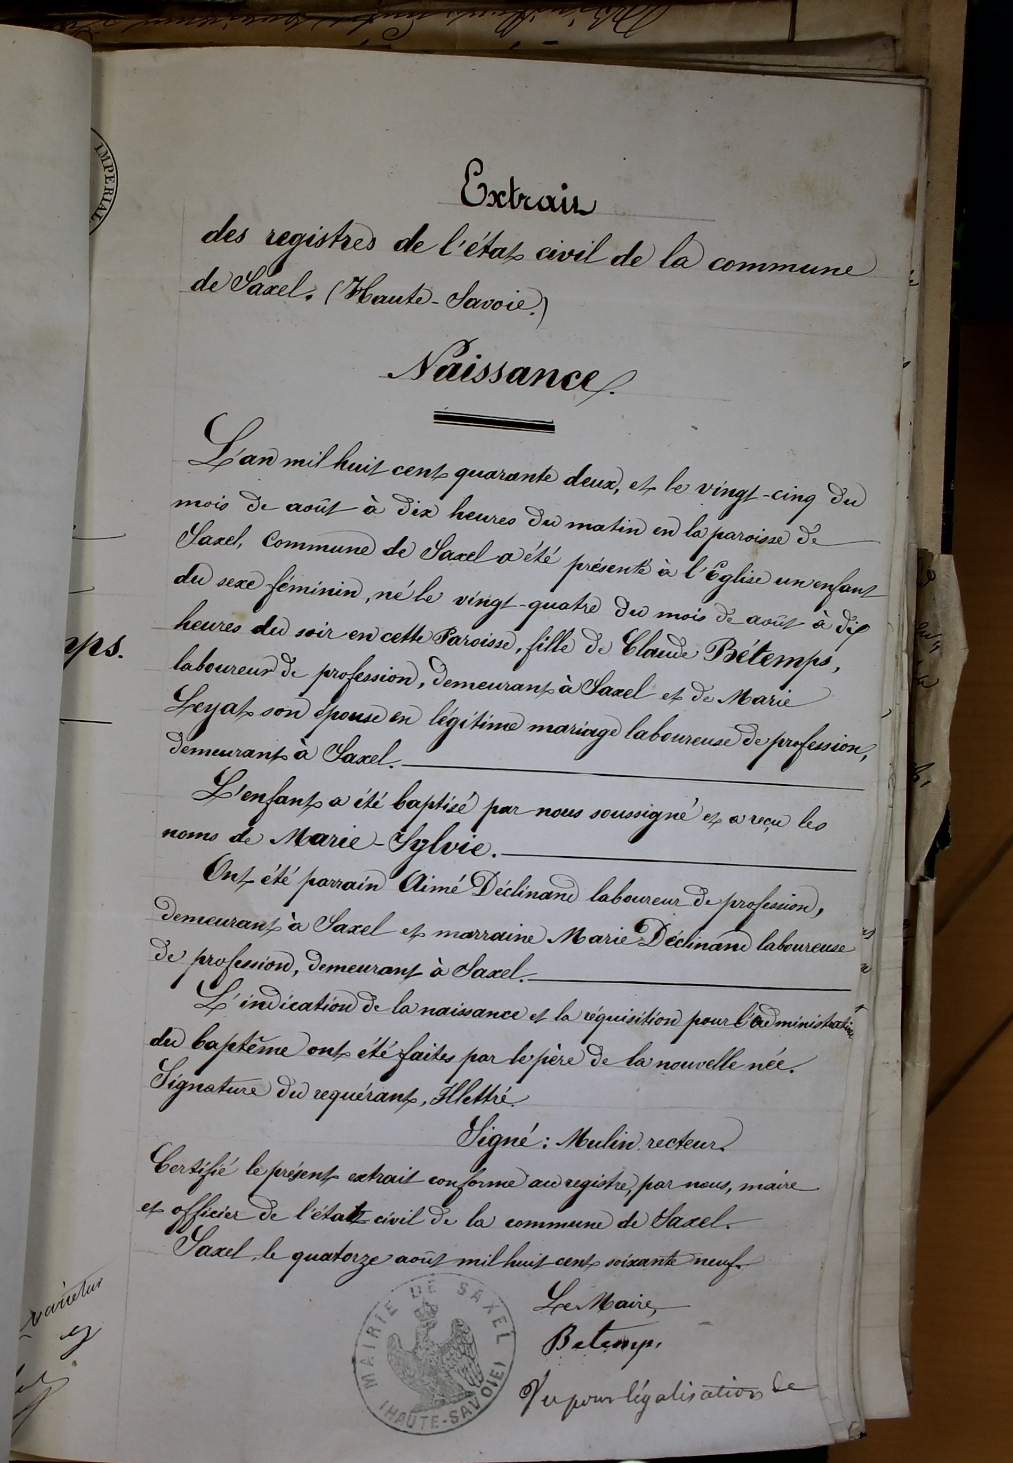 IMPERIAL
Extrait
des registres de l'état civil de la commune
de Saxel. (Haute-Savoie.)
Naissance.
L'an mil huit cent quarante deux, et le vingt-cinq du
mois de août à dix heures du matin en la paroisse de
Saxel, Commune de Saxel a été présenté à l'Eglise un enfant
du sexe féminin, né le vingt-quatre du mois de août à dix
heures du soir en cette Paroisse, fille de Claude Bétemps,
laboureur de profession, demeurant à Saxel et de Marie
Leyat son épouse en légitime mariage laboureuse de profession,
demeurant à Saxel.
L'enfant a été baptisé par nous soussigné et a reçu les
noms de Marie-Sylvie.
Ont été parrain Aimé Déclinand laboureur de profession,
demeurant à Saxel et marraine Marie Déclinand laboureuse
de profession, demeurant à Saxel.
L'indication de la naissance et la réquisition pour l'administration
du baptême ont été faites par le père de la nouvelle née.
Signature du requérant, Illettré.
Signé : Mulin recteur.
Certifié le présent extrait conforme au registre, par nous, maire
et officier de l'état civil de la commune de Saxel.
Saxel, le quatorze août mil huit cent soixante neuf.
Le Maire,
Betemps
MAIRIE DE SAXEL
(HAUTE-SAVOIE)
Vu pour légalisation de
mps.